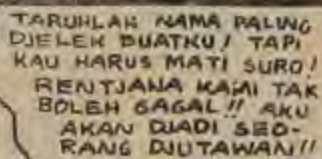 TARUHLAH NAMA PALING
DJELEK BUATKU! TAPI
KAU HARUS MATI SURO!
RENTJANA KAMI TAK
BOLEH GAGAL!! AKU
AKAN DJADI SEO-
RANG DJUTAWAN!!